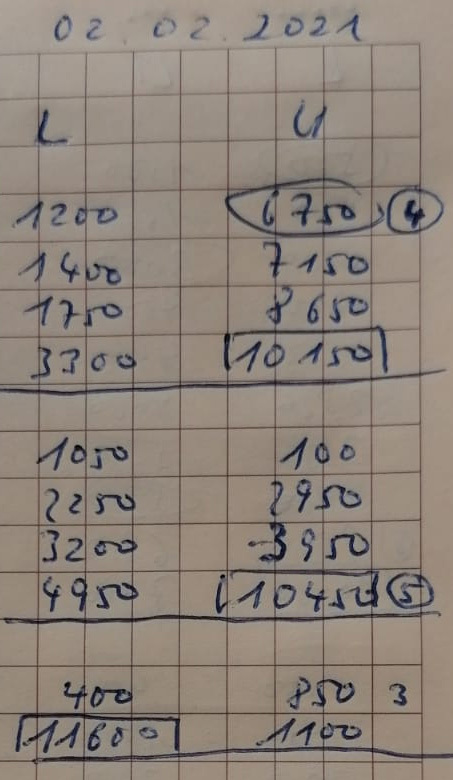 02.02.2021
L U
1200 6750 4
1400 7150
1750 8650
3300 10150
1050 100
2250 2950
3200 3950
4950 10450 5
400 850 3
11600 1100